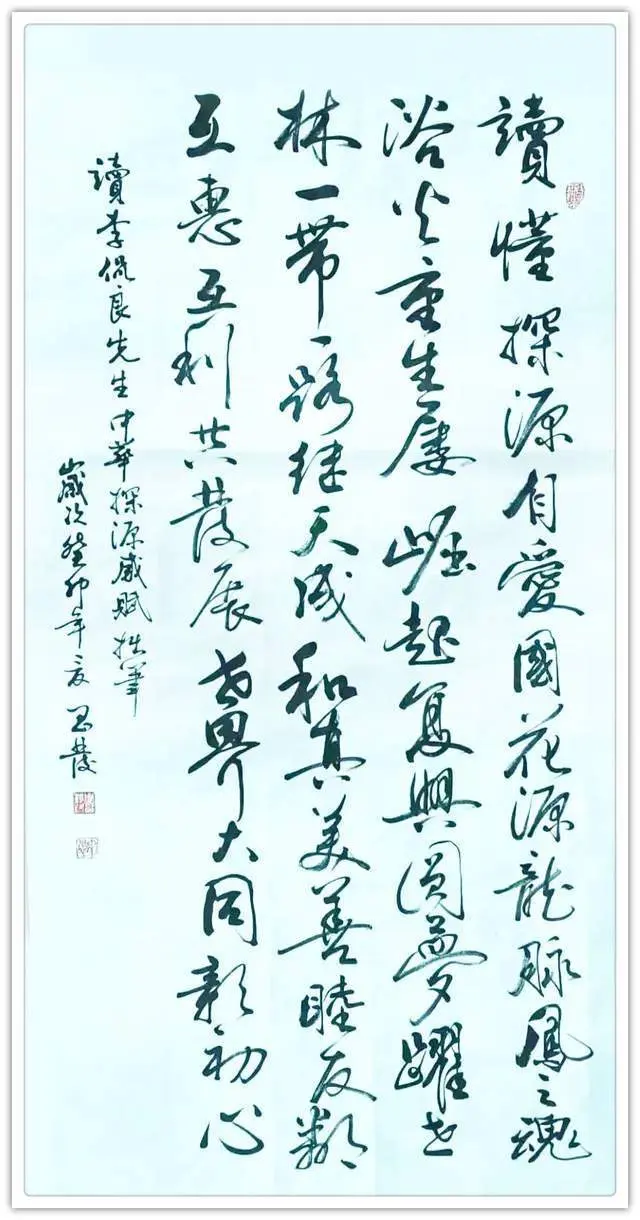 讀懂探源自愛國花源龍脉鳳之魂
浴火重生屢崛起復興圓夢躍世
林一帶一路繼天成和真美善睦友鄰
互惠互利共發展世界大同彰初心
讀李侃良先生中華探源感賦拙筆
歲次癸卯年夏